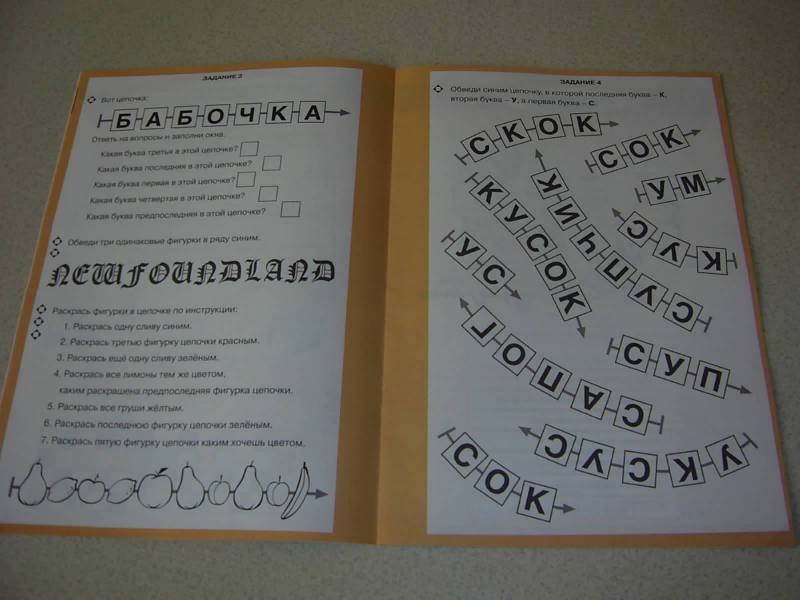 ЗАДАНИЕ 3
Вот цепочка:
БАБОЧКА
Ответь на вопросы и заполни окна.
Какая буква третья в этой цепочке?
Какая буква последняя в этой цепочке?
Какая буква первая в этой цепочке?
Какая буква четвертая в этой цепочке?
Какая буква предпоследняя в этой цепочке?
Обведи три одинаковые фигурки в ряду синим.
NEWFOUNDLAND
Раскрась фигурки в цепочке по инструкции:
1. Раскрась одну сливу синим.
2. Раскрась третью фигурку цепочки красным.
3. Раскрась ещё одну сливу зелёным.
4. Раскрась все лимоны тем же цветом,
каким раскрашена предпоследняя фигурка цепочки.
5. Раскрась все груши жёлтым.
6. Раскрась последнюю фигурку цепочки зелёным.
7. Раскрась пятую фигурку цепочки каким хочешь цветом.
ЗАДАНИЕ 4
Обведи синим цепочку, в которой последняя буква – К,
вторая буква – У, а первая буква – С.
СКОК
СОК
УМ
КУСОК
СУПЧИК
КУС
УС
САПОГ
СУП
УКСУС
СОК